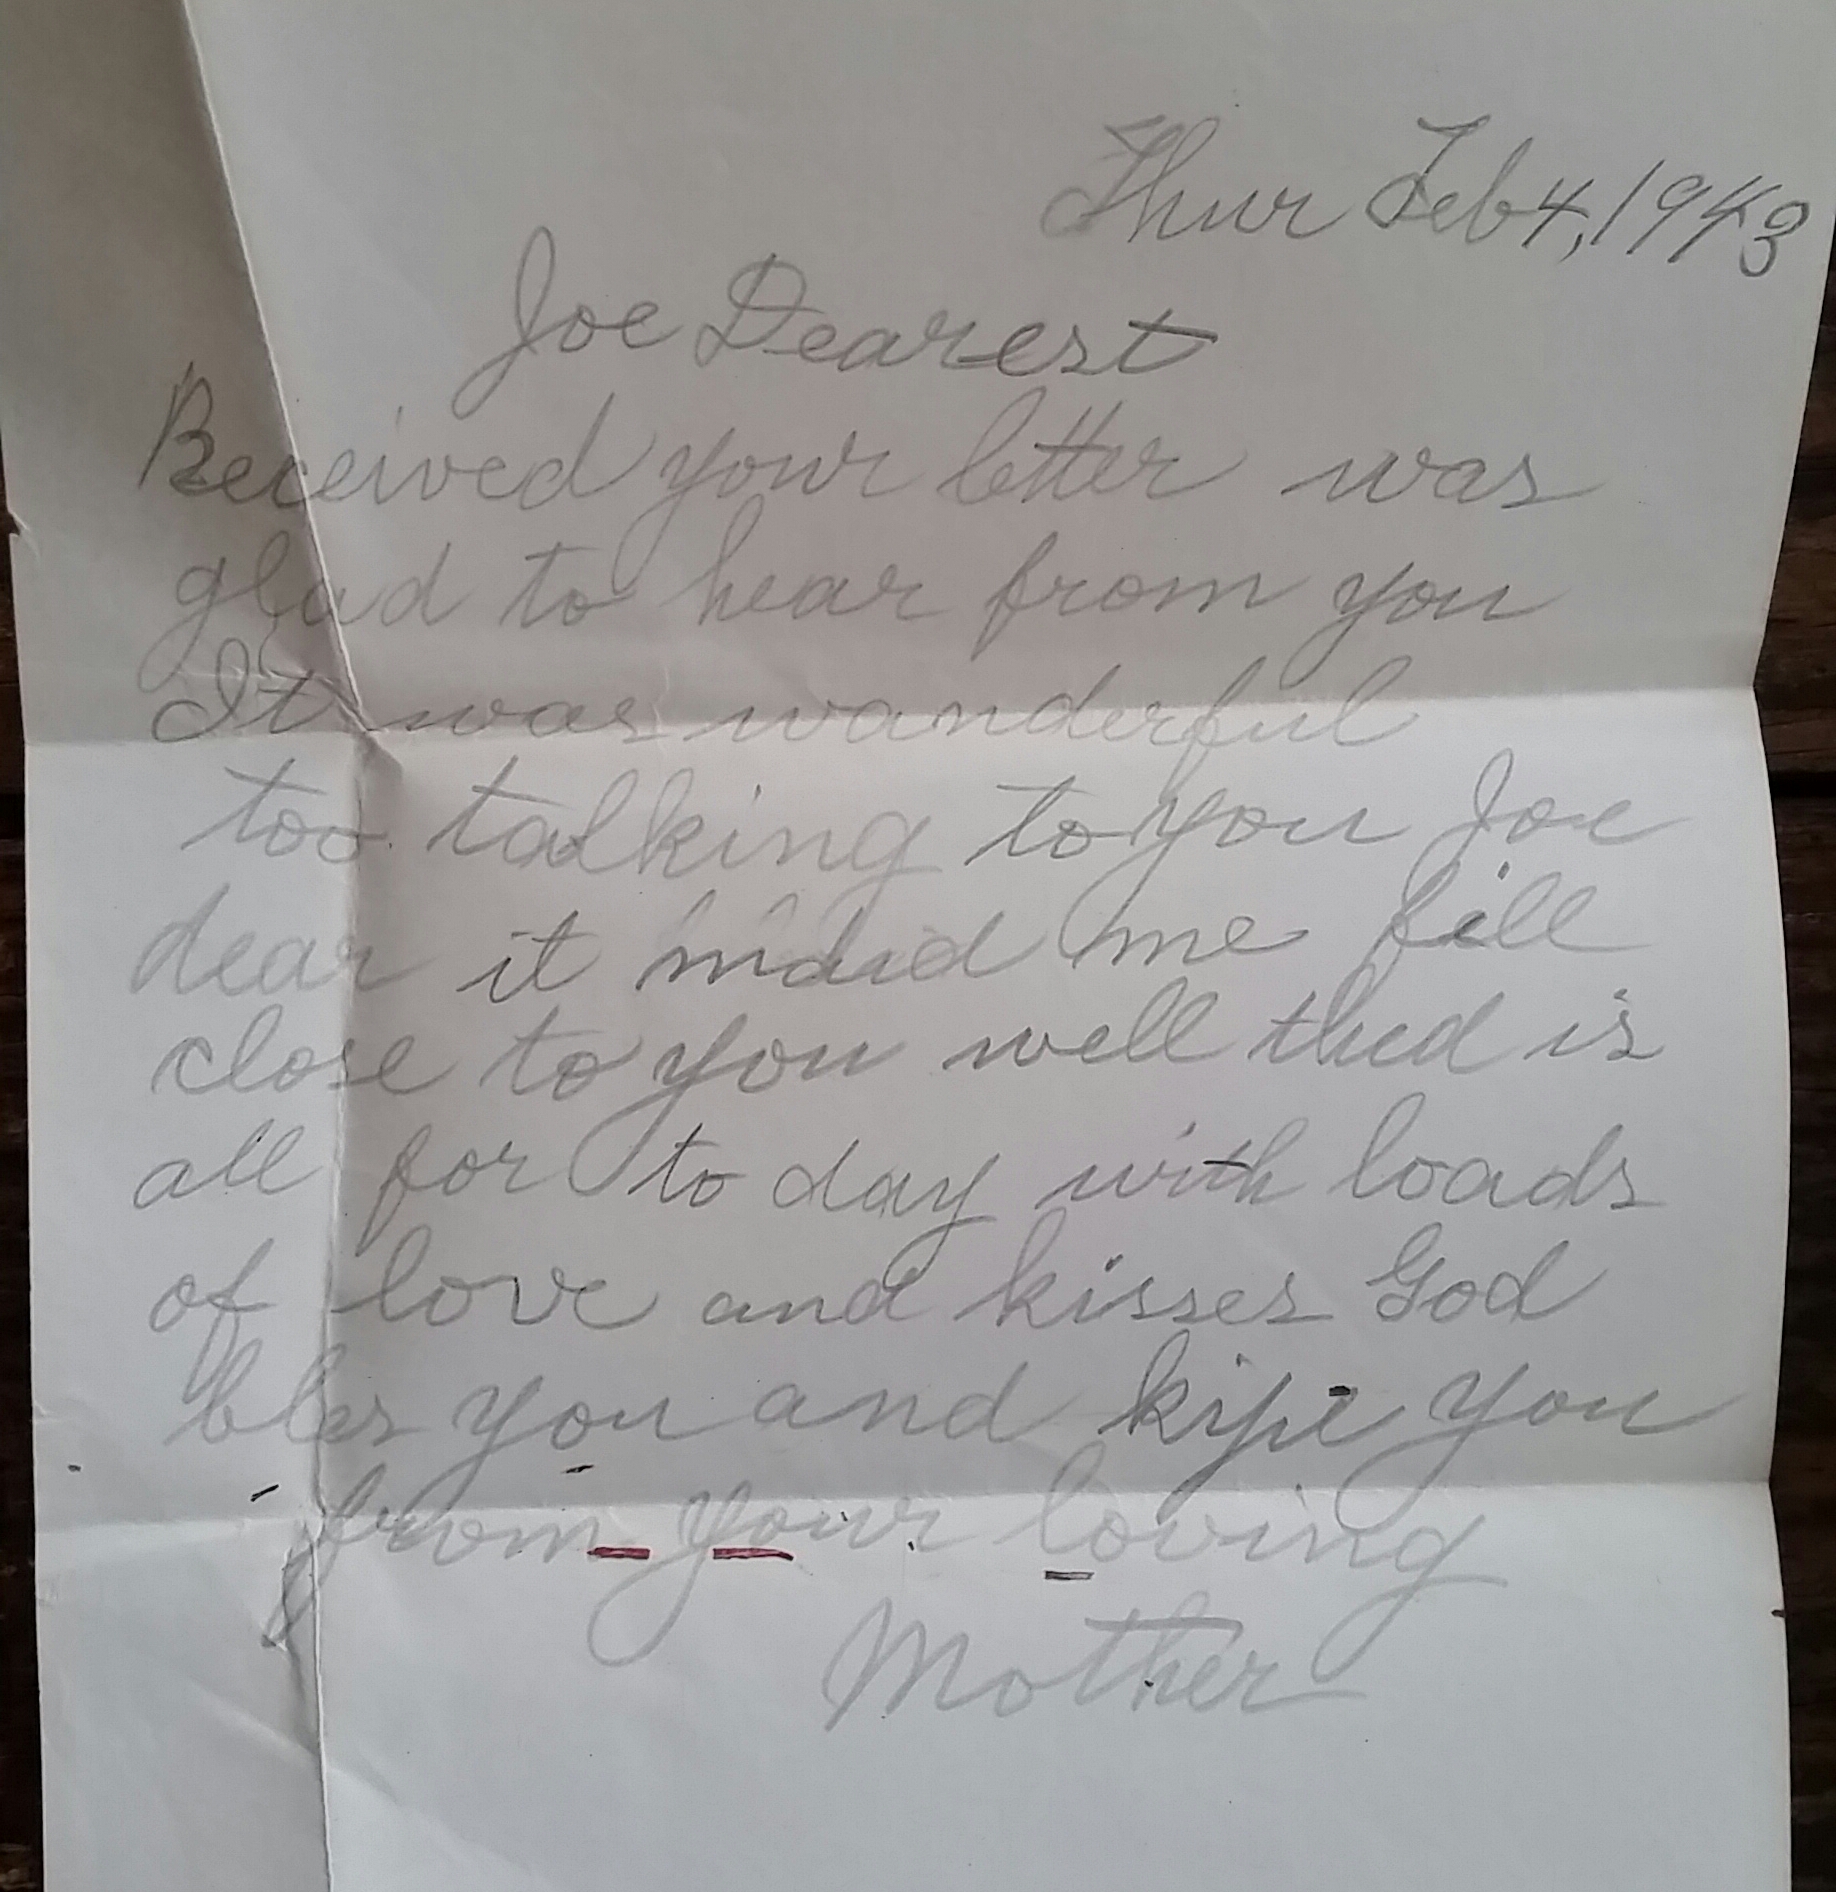 Thur Feb 4, 1943
Joe Dearest
Received your letter was
glad to hear from you
It was wanderful
too talking to you Joe
dear it maid me fill
close to you well thed is
all for to day with loads
of love and kisses God
bles you and kipe you
from your loving
Mother